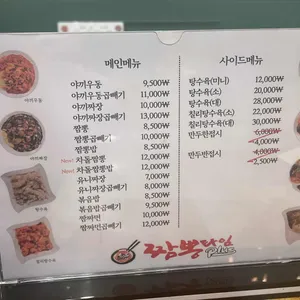 메인메뉴
야끼우동 9,500₩
야끼우동곱빼기 11,000₩
야끼짜장 10,000₩
야끼짜장곱빼기 13,000₩
짬뽕 8,500₩
짬뽕곱빼기 10,000₩
짬뽕밥 8,500₩
New! 차돌짬뽕 12,000₩
New! 차돌짬뽕밥 12,000₩
유니짜장 7,000₩
유니짜장곱빼기 8,500₩
볶음밥 8,500₩
볶음밥곱빼기 9,500₩
짬짜면 10,000₩
짬짜면곱빼기 12,000₩
사이드메뉴
탕수육(미니) 12,000₩
탕수육(소) 20,000₩
탕수육(대) 28,000₩
칠리탕수육(소) 22,000₩
칠리탕수육(대) 30,000₩
만두한접시 6,000₩
4,000₩
만두반접시 4,000₩
2,500₩
야끼우동
야끼짜장
탕수육
칠리탕수육
짬뽕타임
Plus